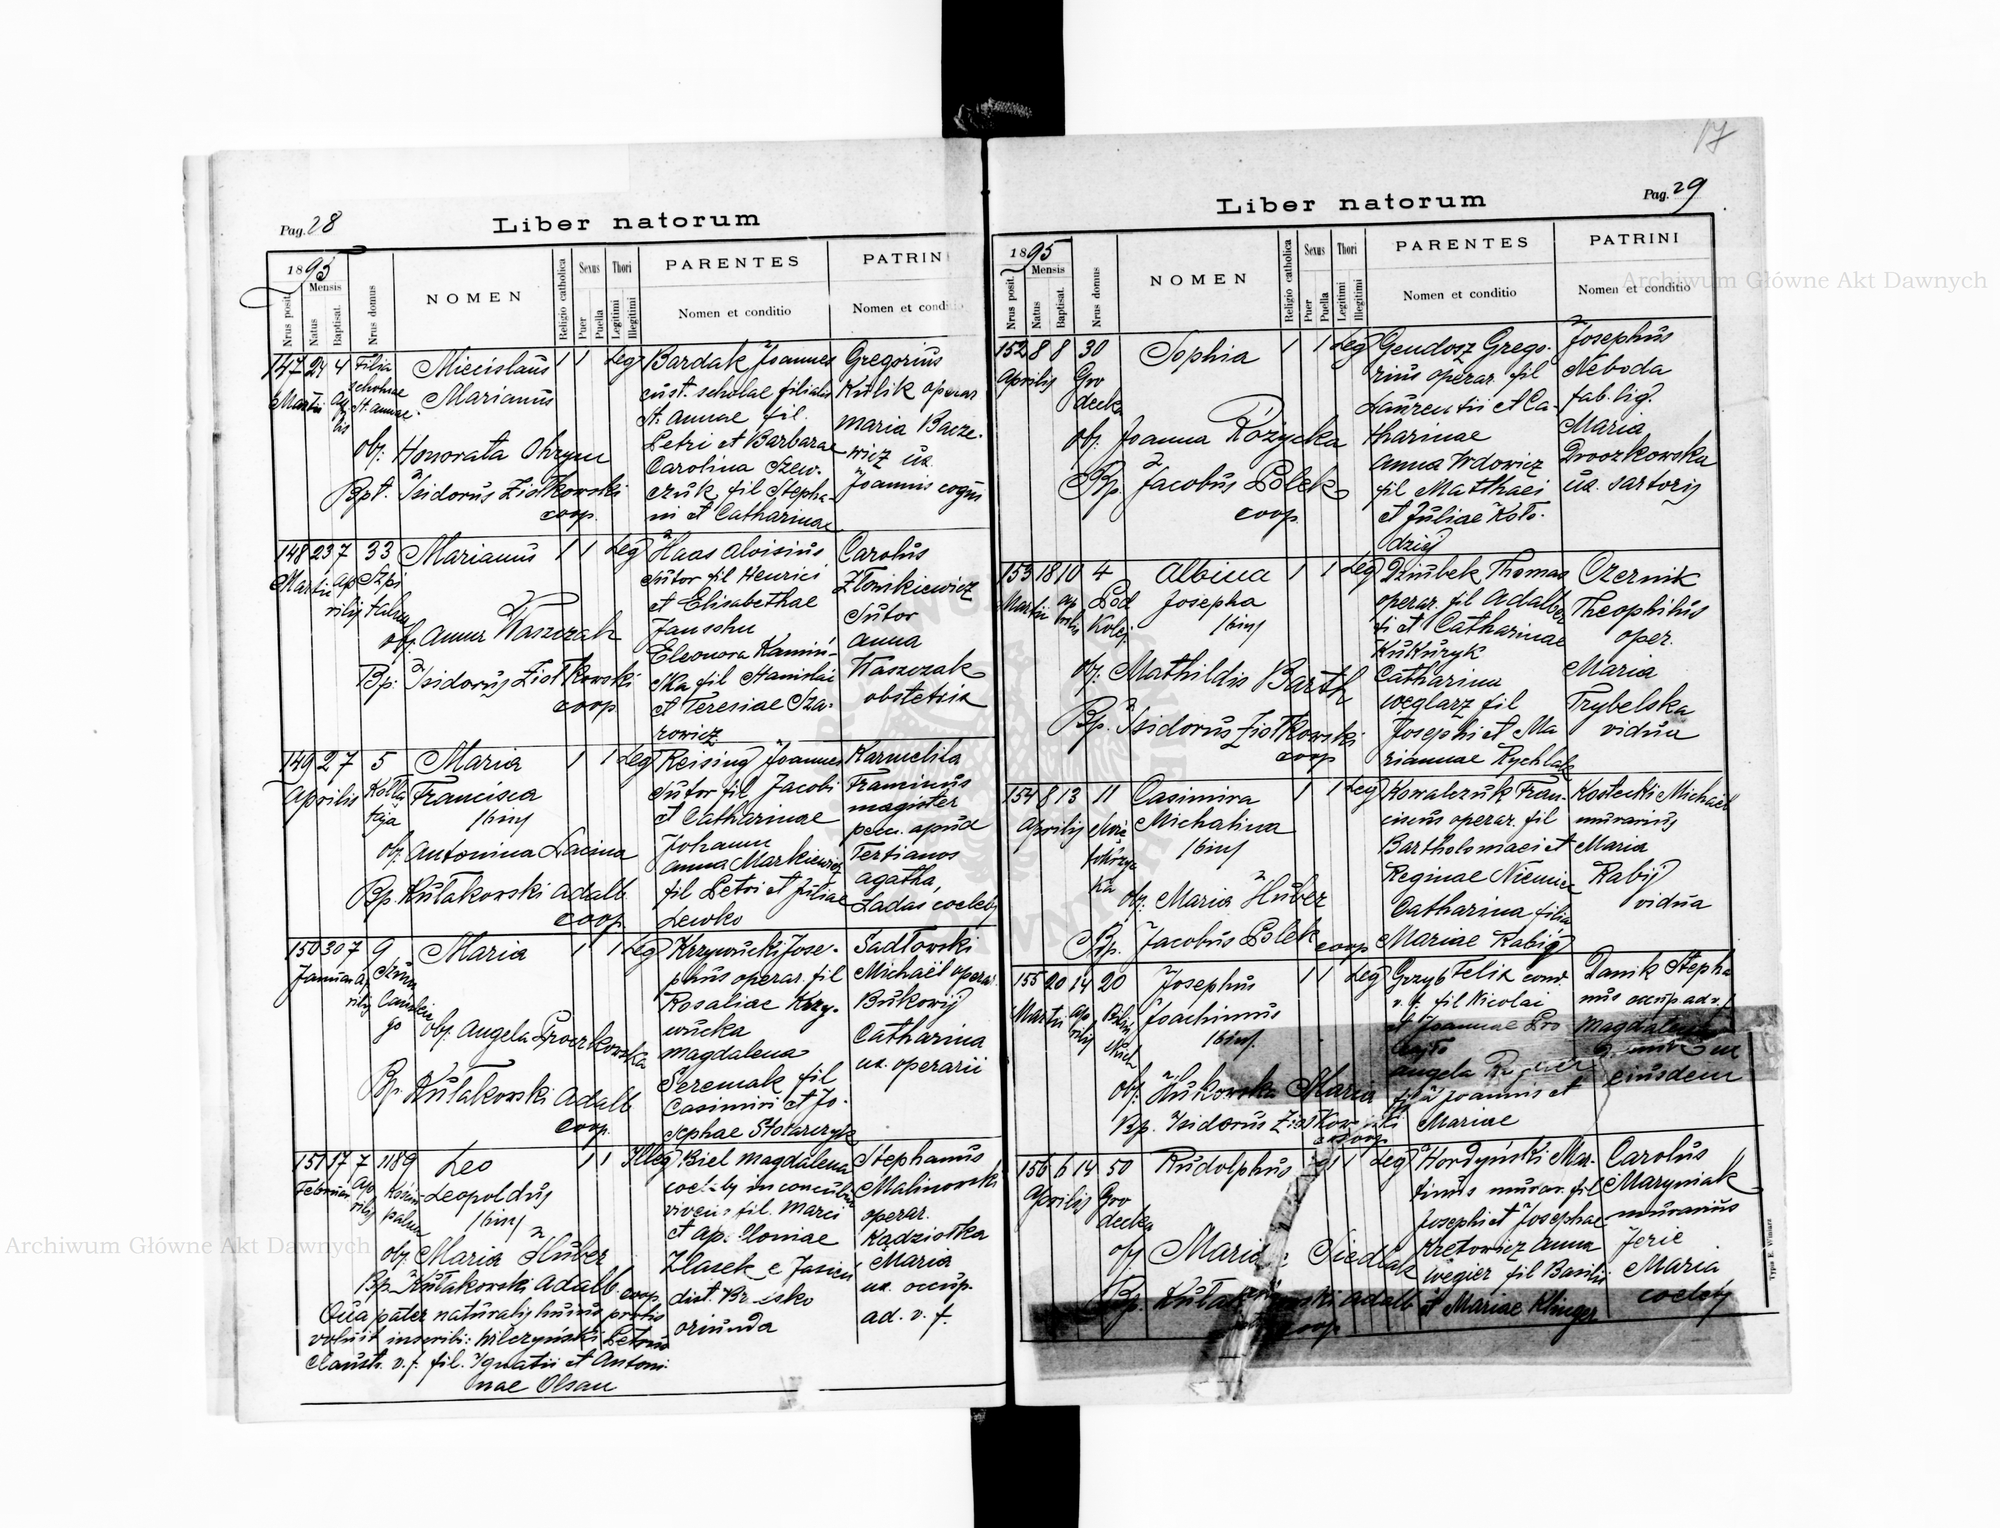 17
Pag. 28
Liber natorum
1895
Nrus posit.
Mensis
Natus
Baptisat.
Nrus domus
NOMEN
Religio catholica
Sexus
Puer
Puella
Thori
Legitimi
Illegitimi
PARENTES
Nomen et conditio
PATRIN
Nomen et condi
147 24 4 Filia
scholae
St. Annae
Martii
Miecislaus
Marianus
1 1 Leg
obs. Honorata
Bpt. Isidorus Ziotkowski
coop.
Bardak Joannes
cust. scholae filialis
St. Annae fil.
Petri et Barbarae
Carolina Szew-
czuk fil Stepha-
ni et Catharinae
Gregorius
Kulik operar
Maria Bacze-
wicz ux.
Joannis coqui
148 23 7 33
Martii Ap
rilis
Marianus
1 1 Leg
obs. Anna Waszczak
Bp. Isidorus Ziotkowski
coop
Haas Aloisius
sutor fil Henrici
et Elisabethae
Eleonora Kamiń-
ska fil Stanislai
et Teresiae Sza-
rowicz
Carolus
Sutor
Anna
Waszczak
obstetrix
149 2 7 5
Aprilis Kołłą
taja
Maria
Francisca
1 1 Leg
obs. Antonina Lacina
Bp. Kułakowski Adalb.
coop.
Reising Joannes
sutor fil Jacobi
et Catharinae
Johann
Anna Markiewicz
fil Petri et Juliae
Lewko
Karmelita
magister
apud
Tertianos
Agatha
Ładas coelebs
150 30 7 9
Januarii
Maria
1 1 Leg
obs. Angela
Bp. Kułakowski Adalb
coop.
Krzywucki Jose-
phus operar. fil
Rosaliae Krzy-
wucka
Magdalena
Seremak fil
Casimiri et Jo-
sephae Stolarczyk
Sadłowski
Michaël operar.
Bukowij
Catharina
ux. operarii
151 17 7 1189
Februarii
Leo
Leopoldus
1 1 Illeg
obs. Maria Huber
Bp. Kułakowski Adalb. coop
Qua pater naturalis hujus prolis
voluit inscribi: Wilczyński Petrus
v. f. fil. Ignatii et Antoni-
nae Olsan
Biel Magdalena
in concubin
vivens fil. Marci
et
dist.
oriunda
Stephanus
Malinowski
operar.
Radziołka
Maria
ux. occup.
ad. v. f.
Liber natorum
Pag. 29
1895
Nrus posit.
Mensis
Natus
Baptisat.
Nrus domus
NOMEN
Religio catholica
Sexus
Puer
Puella
Thori
Legitimi
Illegitimi
PARENTES
Nomen et conditio
PATRINI
Nomen et conditio
152 8 8 30
Aprilis Gro
decka
Sophia
1 1 Leg
obs. Joanna Różycka
Bp. Jacobus Polek
coop
Gendosz Grego-
rius operar. fil
Laurentii et Ca-
tharinae
Anna Wdowicz
fil Matthaei
et Juliae Koło-
dziej
Josephus
Neboda
fab. lig.
Maria
Drozkowska
ux. sartoris
153 18 10 4
Martii Ap
rilis
Pod
Kolej
Albina
Josepha
1 1 Leg
obs. Mathildis Barth
Bp. Isidorus Ziotkowski
coop
Dziubek Thomas
operar. fil Adalber
ti et Catharinae
Kukuryk
Catharina
Węglarz fil
Josephi et Ma
riannae Rychlak
Czernik
Theophilus
oper.
Maria
Trybelska
vidua
154 8 13 11
Aprilis
Casimira
Michalina
1 1 Leg
obs. Maria Huber
Bp. Jacobus Polek coop
Kowalczuk Fran-
ciscus operar. fil
Bartholomaei et
Reginae Niemiec
Catharina filia
Mariae Rabij
Kostecki Michaël
murarius
Maria
Rabij
vidua
155 20 14 20
Martii Ap
rilis
Josephus
Joachimus
1 1 Leg
obs. Hukowska Maria
Bp. Isidorus Ziotkowski
coop
Grzyb Felix
v. f. fil Nicolai
et Joannae
Angela
fil Joannis et
Mariae
Danik Stepha
nus occup. ad v. f.
Magdalena
ejusdem
156 6 14 50
Aprilis Gro
decka
Rudolphus
1 Leg
obs. Maria Siedlak
Bp. Kułakowski Adalb
coop
Hordyński Mar-
tinus murar. fil
Josephi et Josephae
Kretowicz Anna
Wegier fil Basilii
et Mariae Klinger
Carolus
Maryniak
murarius
Jerie
Maria
coelebs
Typis E. Winiarz
Archiwum Główne Akt Dawnych
Archiwum Główne Akt Dawnych